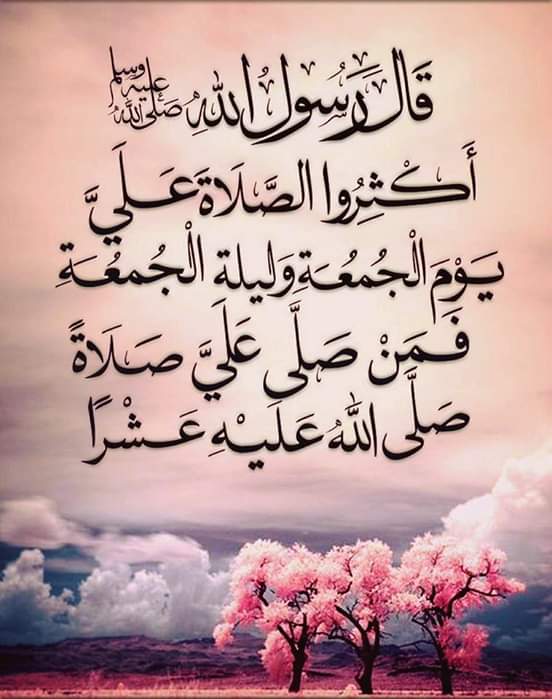 قَالَ رَسُولُ اللهِ صَلَّى اللهُ عَلَيْهِ وَسَلَّم
أَكْثِرُوا الصَّلَاةَ عَلَيَّ
يَوْمَ الْجُمُعَةِ وَلَيلة الْجُمُعَةِ
فَمَنْ صَلَّى عَلَيَّ صَلَاةً
صَلَّى اللهُ عَلَيْهِ عَشْرًا